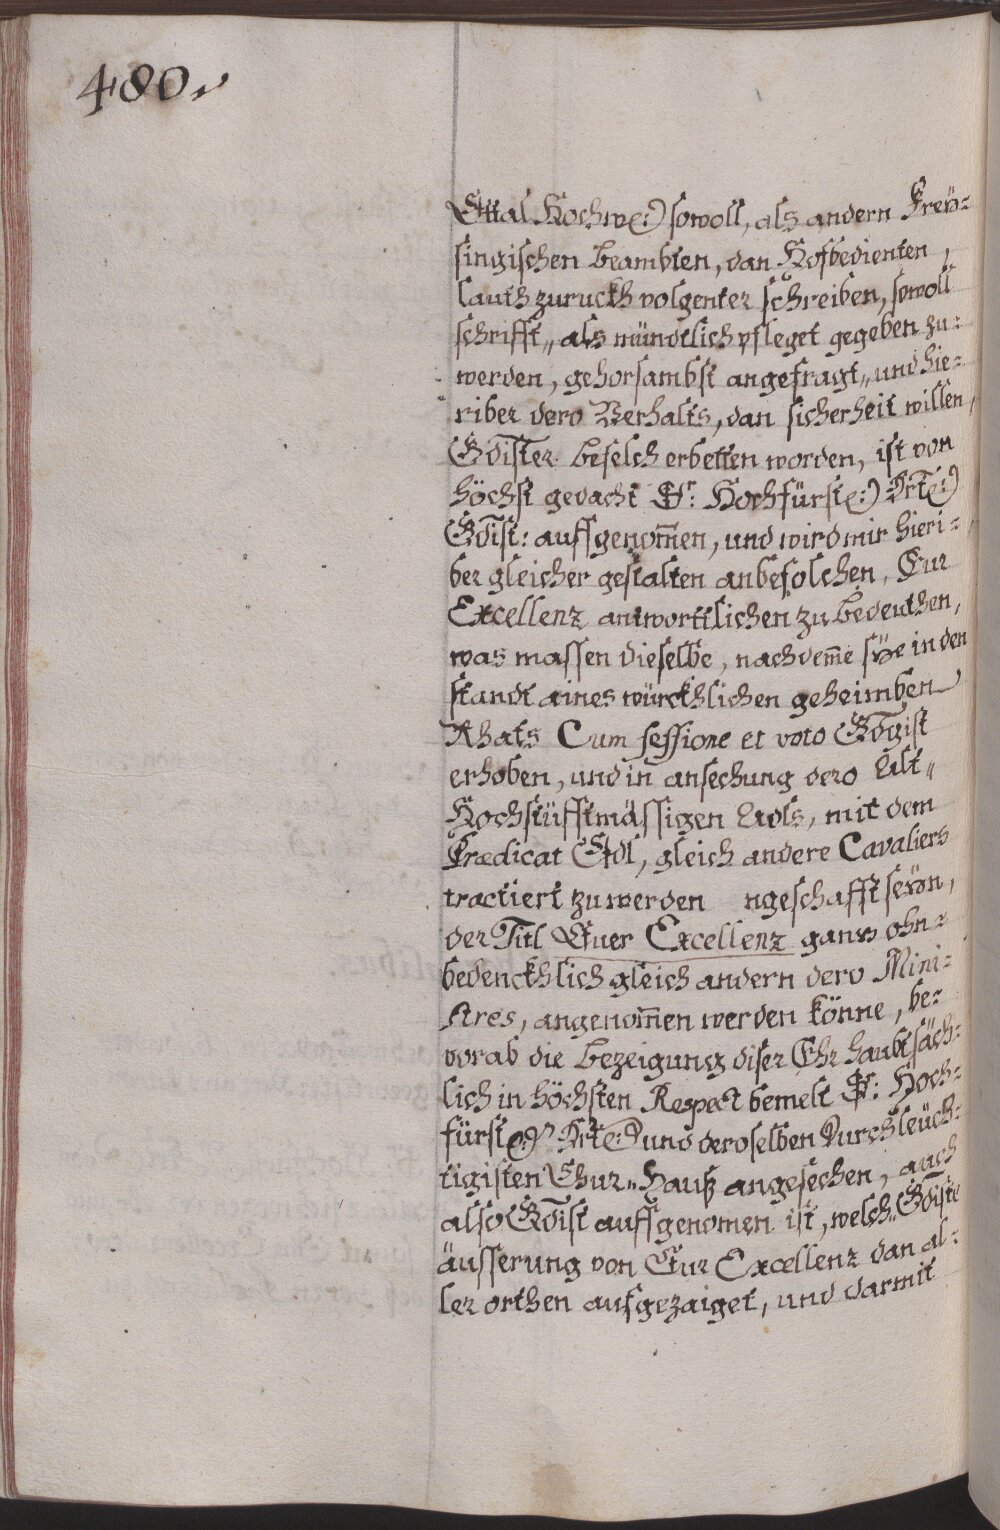 480.
Ettal Hochw(:) sowoll, als andern Freÿ=
singischen beambten, dan Hofbedienten,
lauth zuruckh volgenter schreiben, sowoll
schrifft„ als mündtlich pfleget gegeben zu=
werden, gehorsambst angefragt„ und hie=
riber dero Verhalts, dan sicherheit willen,
Gdister befelch erbetten worden, ist von
höchst gedacht Sr: Hochfürst(:) Drt(:)
Gdist: auffgenom̄en, und wird mir hieri=
ber gleicher gestalten anbefolchen, Eur
Excellenz antworttlichen zu bedeuthen,
was massen dieselbe, nachdem̄e sÿe in den
standt aines würckhlichen geheimben
Rhats Cum sessione et voto Gdgist
erhoben, und in ansechung dero Alt„
Hochstüfftmässigen Adls, mit dem
Prædicat Edl, gleich andere Cavaliers
tractiert zu werden ngeschafft seÿn,
der Titl Euer Excellenz ganz ohn=
bedenckhlich gleich andern dero Mini=
stres, angenom̄en werden könne, be=
vorab die bezeigung diser Ehr haubtsäch=
lich in höchsten Respect bemelt Sr: Hoch=
fürst(:) Drt(:) und deroselben Durchleüch=
tigisten Chur„ Hauß angesechen, auch
also Gdist auffgenomen ist, welch„ Gdiste
äusserung von Eur Excellenz dan al=
ler orthen aufgezaiget, und darmit